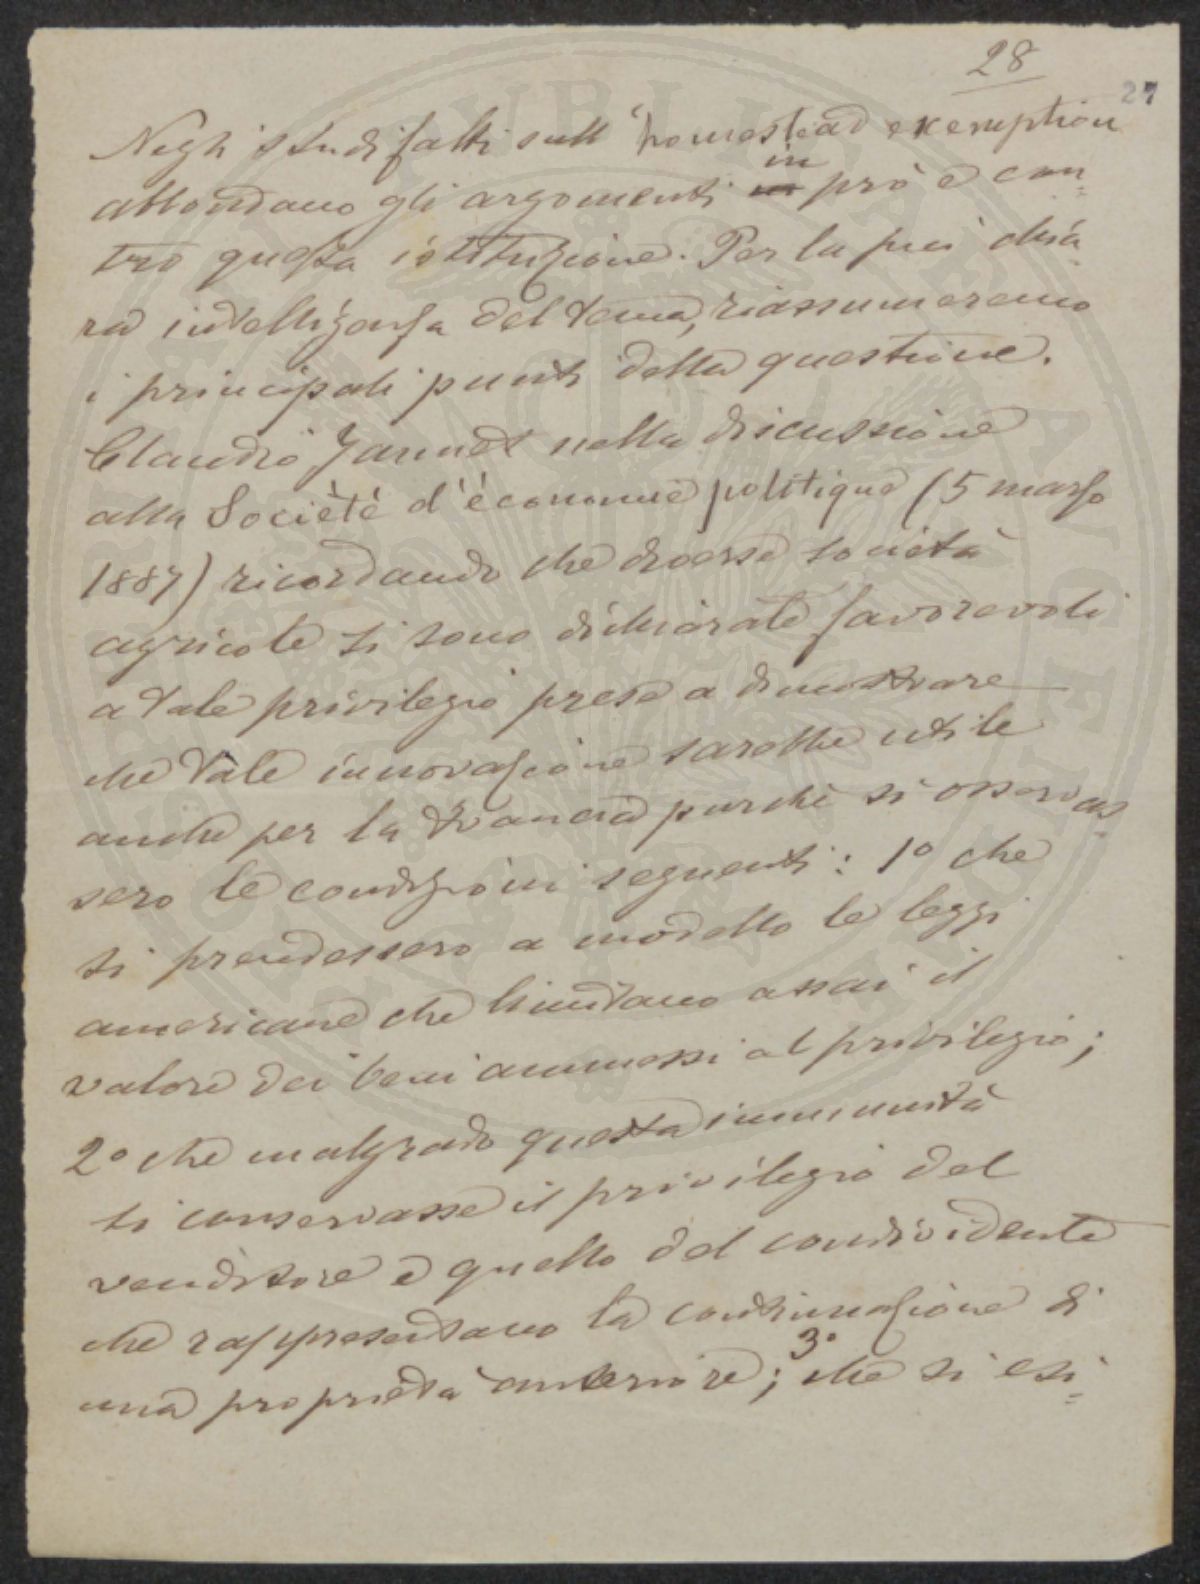 28
27
Negli studi fatti sull'homestead exemption
abbondano gli argomenti in pro e con=
tro questa istituzione. Per la più chia=
ra intelligenza del tema, riassumeremo
i principali punti della questione.
Claudio Jannet nella discussione
alla Société d'économie politique (5 marzo
1887) ricordando che diverse società
agricole si sono dichiarate favorevoli
a tale privilegio prese a dimostrare
che tale innovazione sarebbe utile
anche per la Francia purchè si osservas=
sero le condizioni seguenti: 1° che
si prendessero a modello le leggi
americane che limitano assai il
valore dei beni ammessi al privilegio;
2° che malgrado questa immunità
si conservasse il privilegio del
venditore e quello del condividente
che rappresentano la continuazione di
una proprietà anteriore; 3° che si esi=